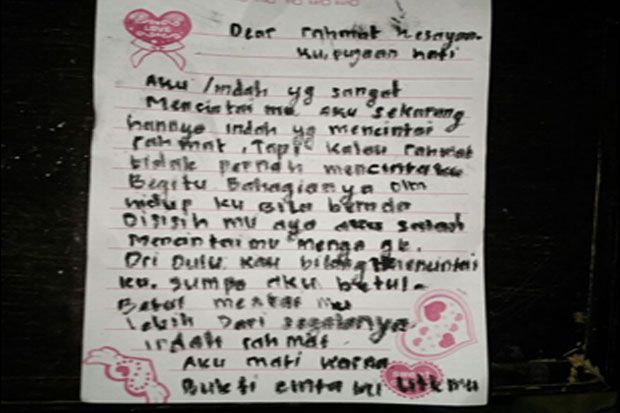 LOVE
Dear rahmat kesayan-
ku, pujaan hati
Aku /indah yg sangat
Mencintai mu aku sekarang
hannya indah yg mencintai
rahmat, Tapi kalau rahmat
tidak pernah mencintaku
Begitu Bahagianya
hidup ku Bila berada
Disisih mu ayo aku salah
Mencintaimu
Dri Dulu kau bilang mencintai
ku. Sumpa aku betul-
Betul
Lebih Dari segalanya
indah rahmat
Aku mati karna
Bukti cinta ku utk mu